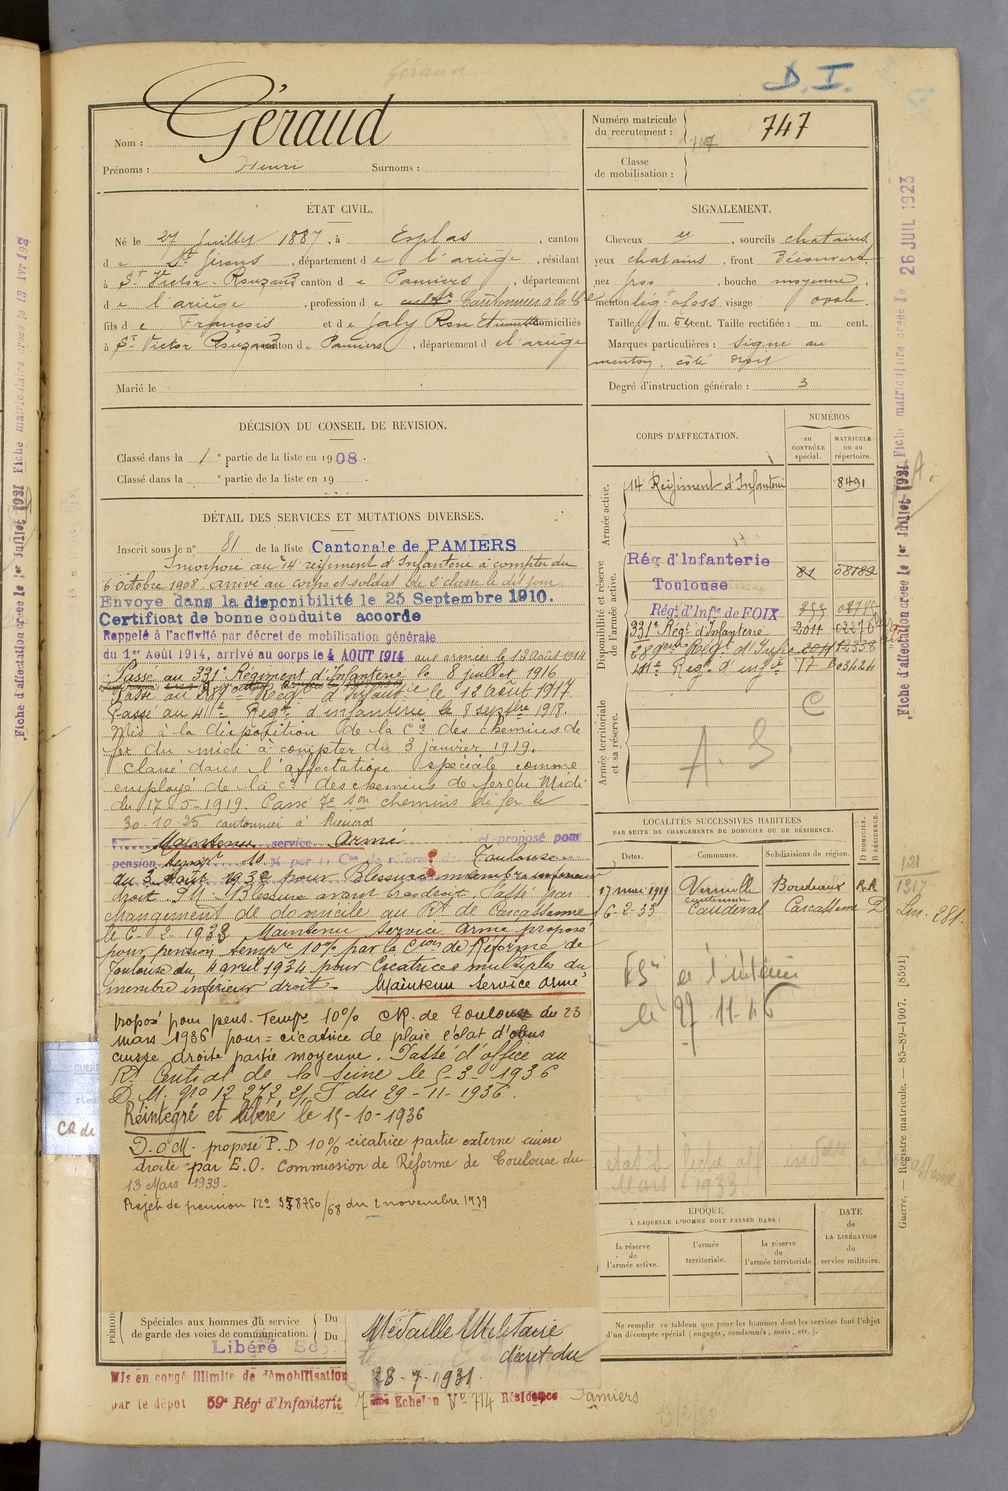 D. I.
Nom : Géraud
Prénoms : Henri Surnoms :
Numéro matricule
du recrutement : 747
Classe
de mobilisation :
ÉTAT CIVIL.
Né le 27 Juillet 1887, à Esplas, canton
de St Girons, département de l'ariège, résidant
à St Victor-Rouzaud canton de Pamiers, département
de l'ariège, profession de Cantonnier à la
fils de François et de Jaly Rose domiciliés
à St Victor Rouzaud canton de Pamiers, département de l'ariège
Marié le
SIGNALEMENT.
Cheveux , sourcils chatains
yeux chatains, front Découvert,
nez gros, bouche moyenne,
menton visage ovale.
Taille 1 m. 54 cent. Taille rectifiée : m. cent.
Marques particulières : Signe au
menton, côté
Degré d'instruction générale : 3
DÉCISION DU CONSEIL DE REVISION.
Classé dans la 1e partie de la liste en 1908.
Classé dans la e partie de la liste en 19 .
DÉTAIL DES SERVICES ET MUTATIONS DIVERSES.
Inscrit sous le n° 81 de la liste Cantonale de PAMIERS
Incorporé au 14e régiment d'Infanterie à compter du
6 Octobre 1908. arrivé au corps et soldat de 2e classe le dit jour
Envoye dans la disponibilité le 25 Septembre 1910.
Certificat de bonne conduite accorde
Rappelé à l'activité par décret de mobilisation générale
du 1er Août 1914, arrivé au corps le 4 AOUT 1914 aux armées le 12 août 1914
Passé au 331e Régiment d'Infanterie le 8 juillet 1916
Passé au 281e Régt d'Infantie le 12 août 1917.
Passé au 411e Regt d'infanterie le 8 septbre 1918.
Mis à la disposition de la Cie des chemins de
fer du midi à compter du 3 janvier 1919.
Classé dans l'affectation spéciale comme
employé de la Cie des chemins de fer du Midi
du 17-5-1919. Passé 7e Son chemins de fer le
30-10-25 cantonnier à Rieucros
Maintenu service Armé et proposé pour
pension temp. 10 % par la Con de réforme de Toulouse
du 3 août 1932 pour Blessure membre inférieur
droit. Blessure avant bras droit. Passé par
changement de domicile au Rt de Carcassonne
le 6-2-1933 Maintenu service armé proposé
pour pension tempre 10% par la Con de Réforme de
Toulouse du 4 avril 1934 pour Cicatrices multiples du
membre inférieur droit. Maintenu service armé
proposé pour pens. Tempe 10% CR. de Toulouse du 23
mars 1936 pour = cicatrice de plaie éclat d'obus
cuisse droite partie moyenne. Passé d'office au
Rt Central de la Seine le 5-3-1936
D.M. No 12 272 2/ T du 29-11-1936.
Réintégré et libéré le 15-10-1936
proposé P.D 10% cicatrice partie externe cuisse
droite par E.O. Commission de Réforme de Toulouse du
13 Mars 1939-
Projet de pension n° 358750/68 du 2 novembre 1939
CR de
CORPS D'AFFECTATION.
NUMÉROS
au
CONTRÔLE
spécial.
MATRICULE
ou au
répertoire.
Armée active.
14 Régiment d'Infanterie 8491
Disponibilité et réserve
de l'armée active.
Rég d'Infanterie
Toulouse 81 08189
Régt d'Infie de FOIX
331e Régt d'Infanterie 2011 02276
281e Régt d'Infie 12336
411e Regt d'infie 17 03424
Armée territoriale
et sa réserve.
C
A. S
LOCALITÉS SUCCESSIVES HABITÉES
PAR SUITE DE CHANGEMENTS DE DOMICILE OU DE RÉSIDENCE.
Dates. Communes. Subdivisions de région. D DOMICILE. R RÉSIDENCE.
17 mai 1919 Verniolle Bordeaux R.R
6-2-33 Caudeval Carcassonne D
cantonnier
le 27-11-45
ÉPOQUE
À LAQUELLE L'HOMME DOIT PASSER DANS :
la réserve
de
l'armée active.
l'armée
territoriale.
la réserve
de
l'armée territoriale
DATE
de
LA LIBÉRATION
du
service militaire.
Ne remplir ce tableau que pour les hommes dont les services font l'objet
d'un décompte spécial (engagés, condamnés, omis, etc.).
Spéciales aux hommes du service
de garde des voies de communication.
Du
Du
Médaille Militaire
décret du
28-7-1931
Libéré
Mis en congé illimité de démobilisation
par le dépôt 59e Régt d'Infanterie 7ème Echelon No 714 Résidence Pamiers
Fiche matriculaire créée le 26 JUIL 1923
Fiche d'affectation créée le 1er Juillet 1921
Guerre. — Registre matricule. — 85-89-1907. [8591]
Fiche d'affectation créée le 1er Juillet 1921 Fiche matriculaire créée le